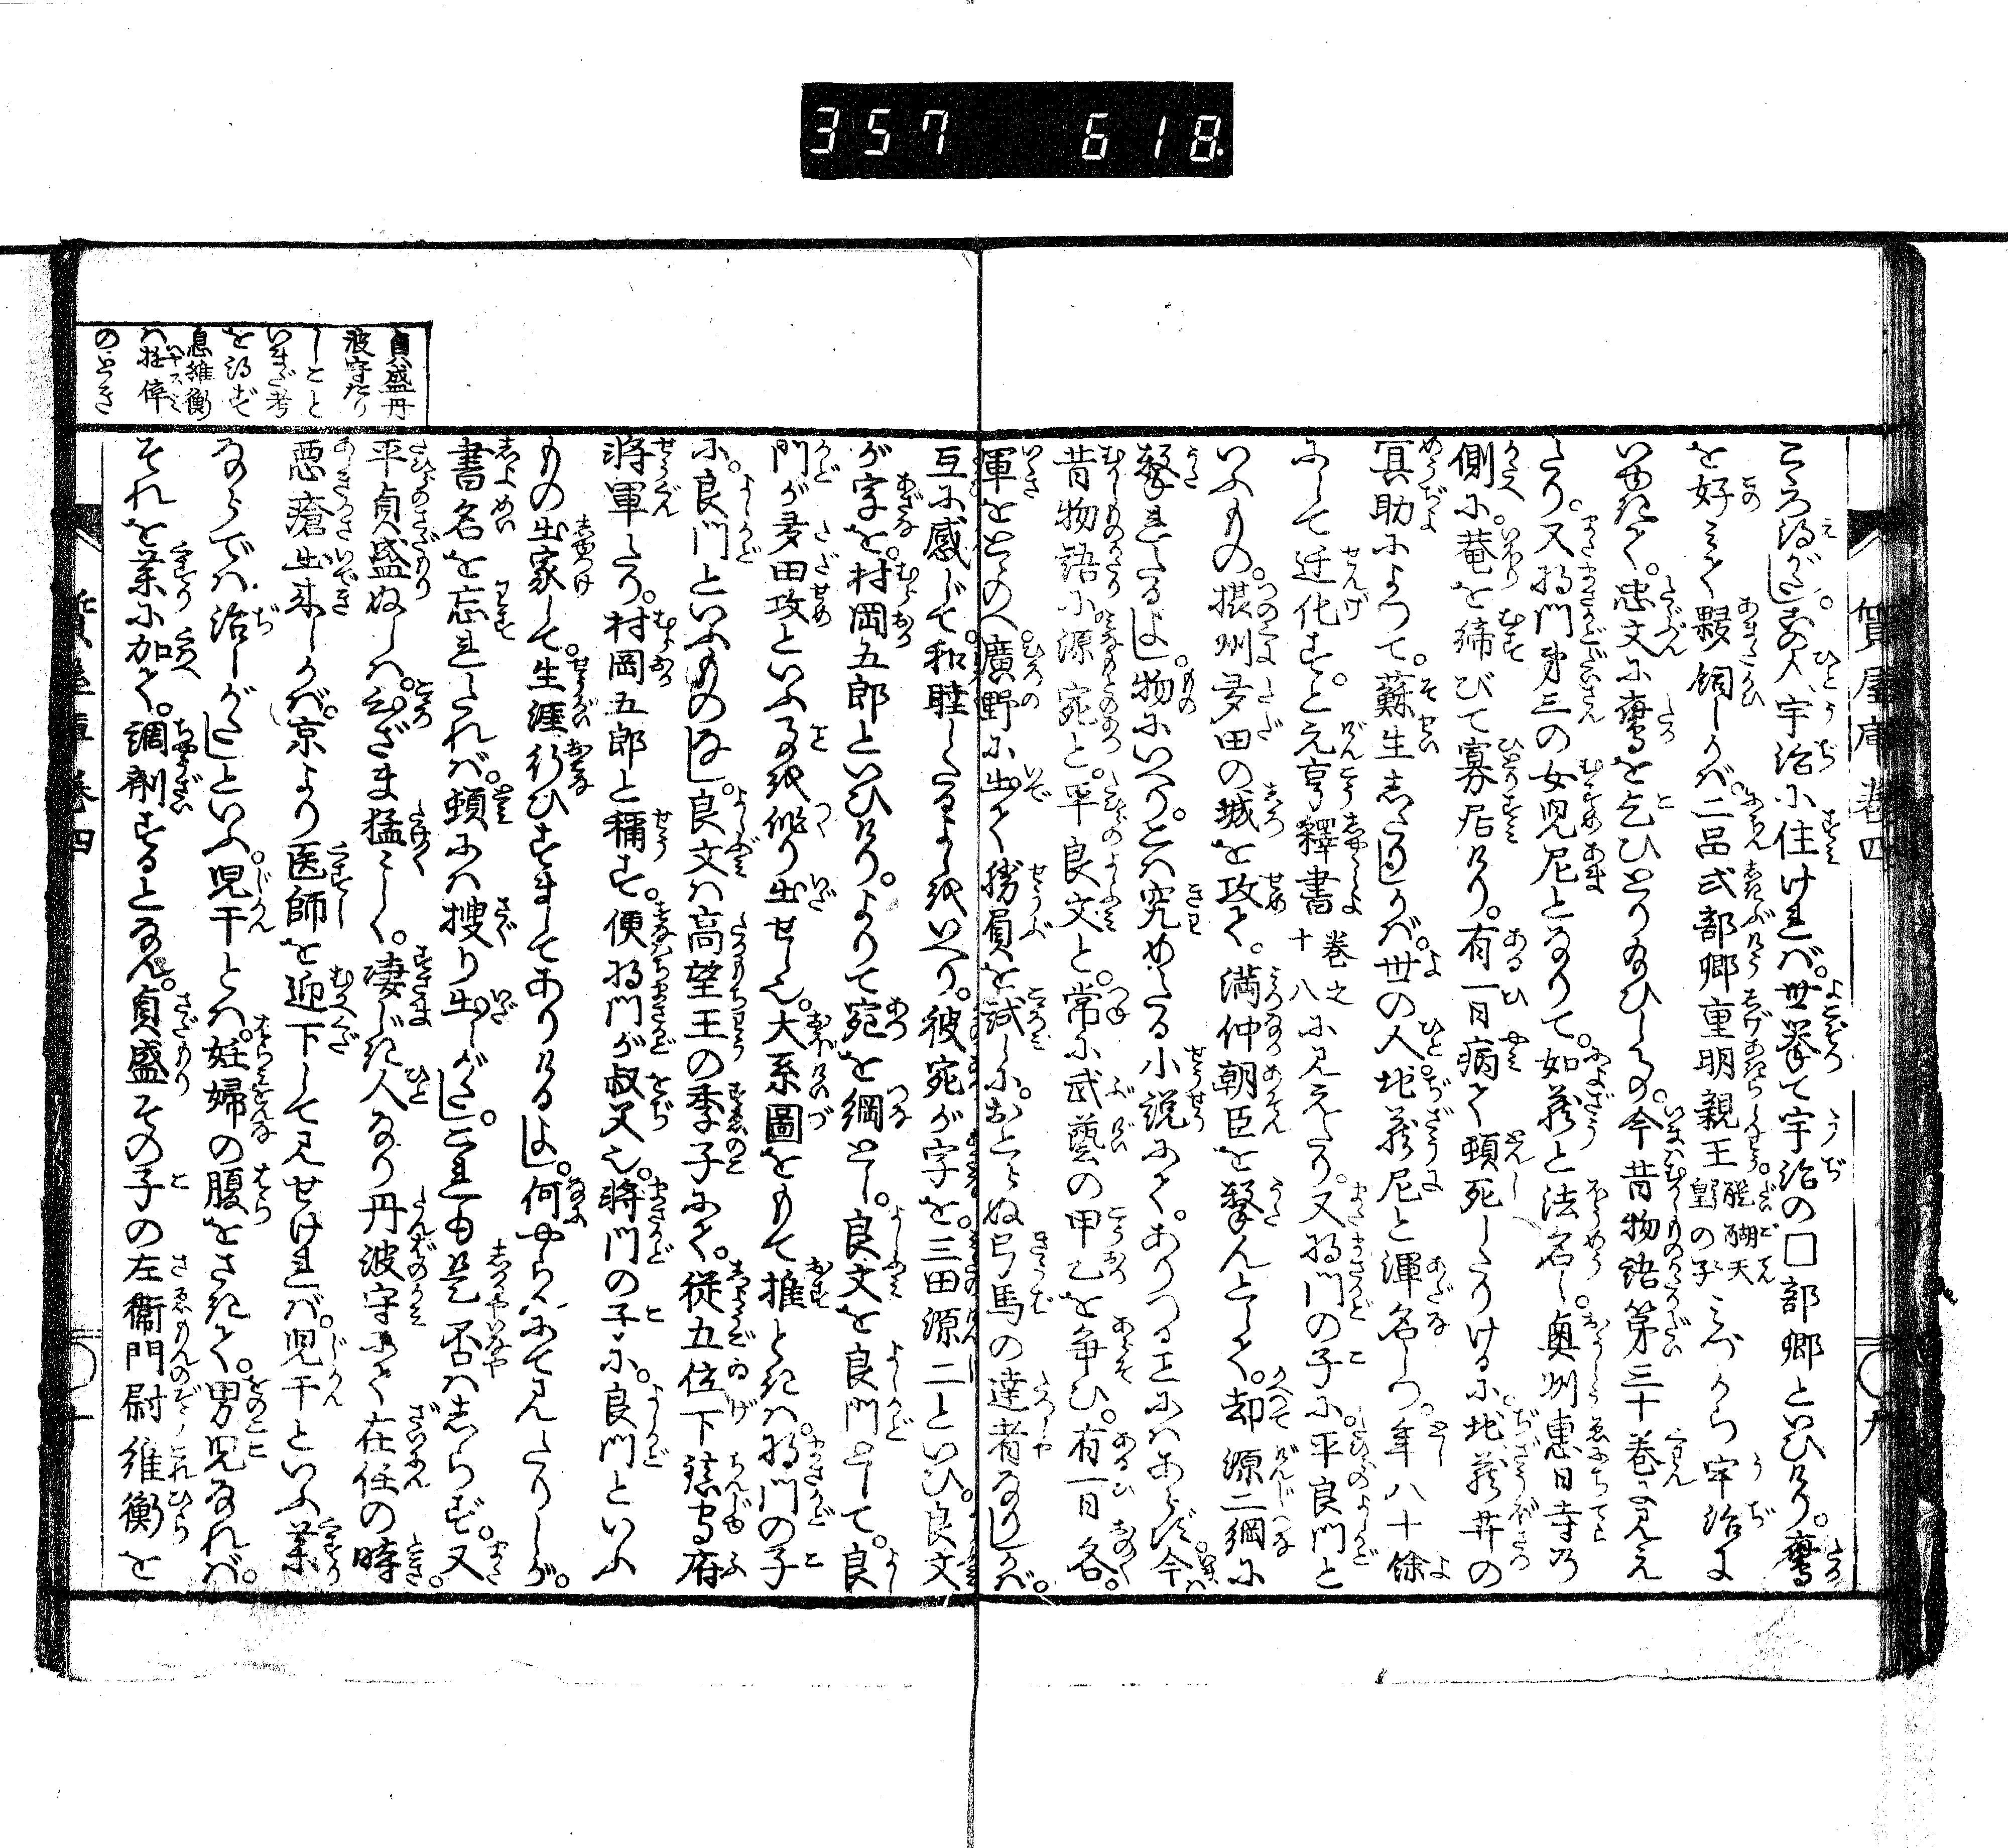 357 618.
質屋庫巻四
九
こゝろ得がたし。この人、宇治に住けれバ。世挙て宇治の□部卿といひけり。鷹
を好みて夥飼しかバ。二品式部卿重明親王醍醐天皇の子みづから宇治に
いゆきて。忠文に鷹を乞ひとり給ひしるの。今昔物語第三十巻に見え
たり。又将門第三の女児尼となりて。如蔵と法名し。奥州恵日寺の
側に菴を締びて寡居けり。有一日病て頓死したりけるに地蔵井の
冥助によつて。蘇生したりしかバ。世の人。地蔵尼と渾名しつ。年八十餘
にして迁化すと元亨釋書巻之十八に見えたり。又将門の子に。平良門と
いふもの。摂州多田の城を攻て。満仲朝臣を撃んとして。却源二綱に
撃れたるよし。物にいへり。こハ究めたる小説にて。ありつる事にハあらず今
昔物語に源宛と。平良文と。常に武藝の甲乙を争ひ。有一日各。
軍をとゝのへ。廣野に出て勝屓を試しに。おとらぬ弓馬の達者なりしかバ。
互に感じて。和睦したるよしいへり。彼宛が字を。三田源二といひ。良文
が字を。村岡五郎といひけり。よりて宛を綱とし。良文を良門として。良
門が多田攻といふるを作り出せし也。大系圖をもて推ときハ。将門の子
に。良門といふものなし。良文ハ高望王の季子にて。従五位下鎮守府
将軍たり。村岡五郎と稱す。便将門が叔父也。将門の子に。良門といふ
もの出家して。生涯行ひすましてありけるよし。何やらんにて見たりしが。
書名を忘れたれバ。頓にハ捜り出しがたし。これも是否ハしらず。又
平貞盛ぬしハ。心ざま猛くして。凄じき人なり丹波守にて在任の時。
悪瘡出来しかバ。京より医師を迎下して見せけれバ。児干といふ薬
ならでハ治しがたしといふ。児干とハ。妊婦の腹をさきて。男児なれバ。
それを薬に加て。調剤するとなん。貞盛その子の左衛門尉維衡を
貞盛丹
波守たり
しこと
いまだ考
を得ず
息維衡
ハ
のとき
巻四